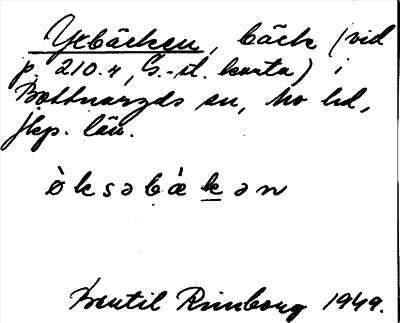 Yxbäcken, bäck (vid
p. 210.4, G.-st. karta) i
Bottnaryds sn, Mo hd,
Jkp. län.
ò̀ksəbǽkən
Bertil Rimborg 1949.